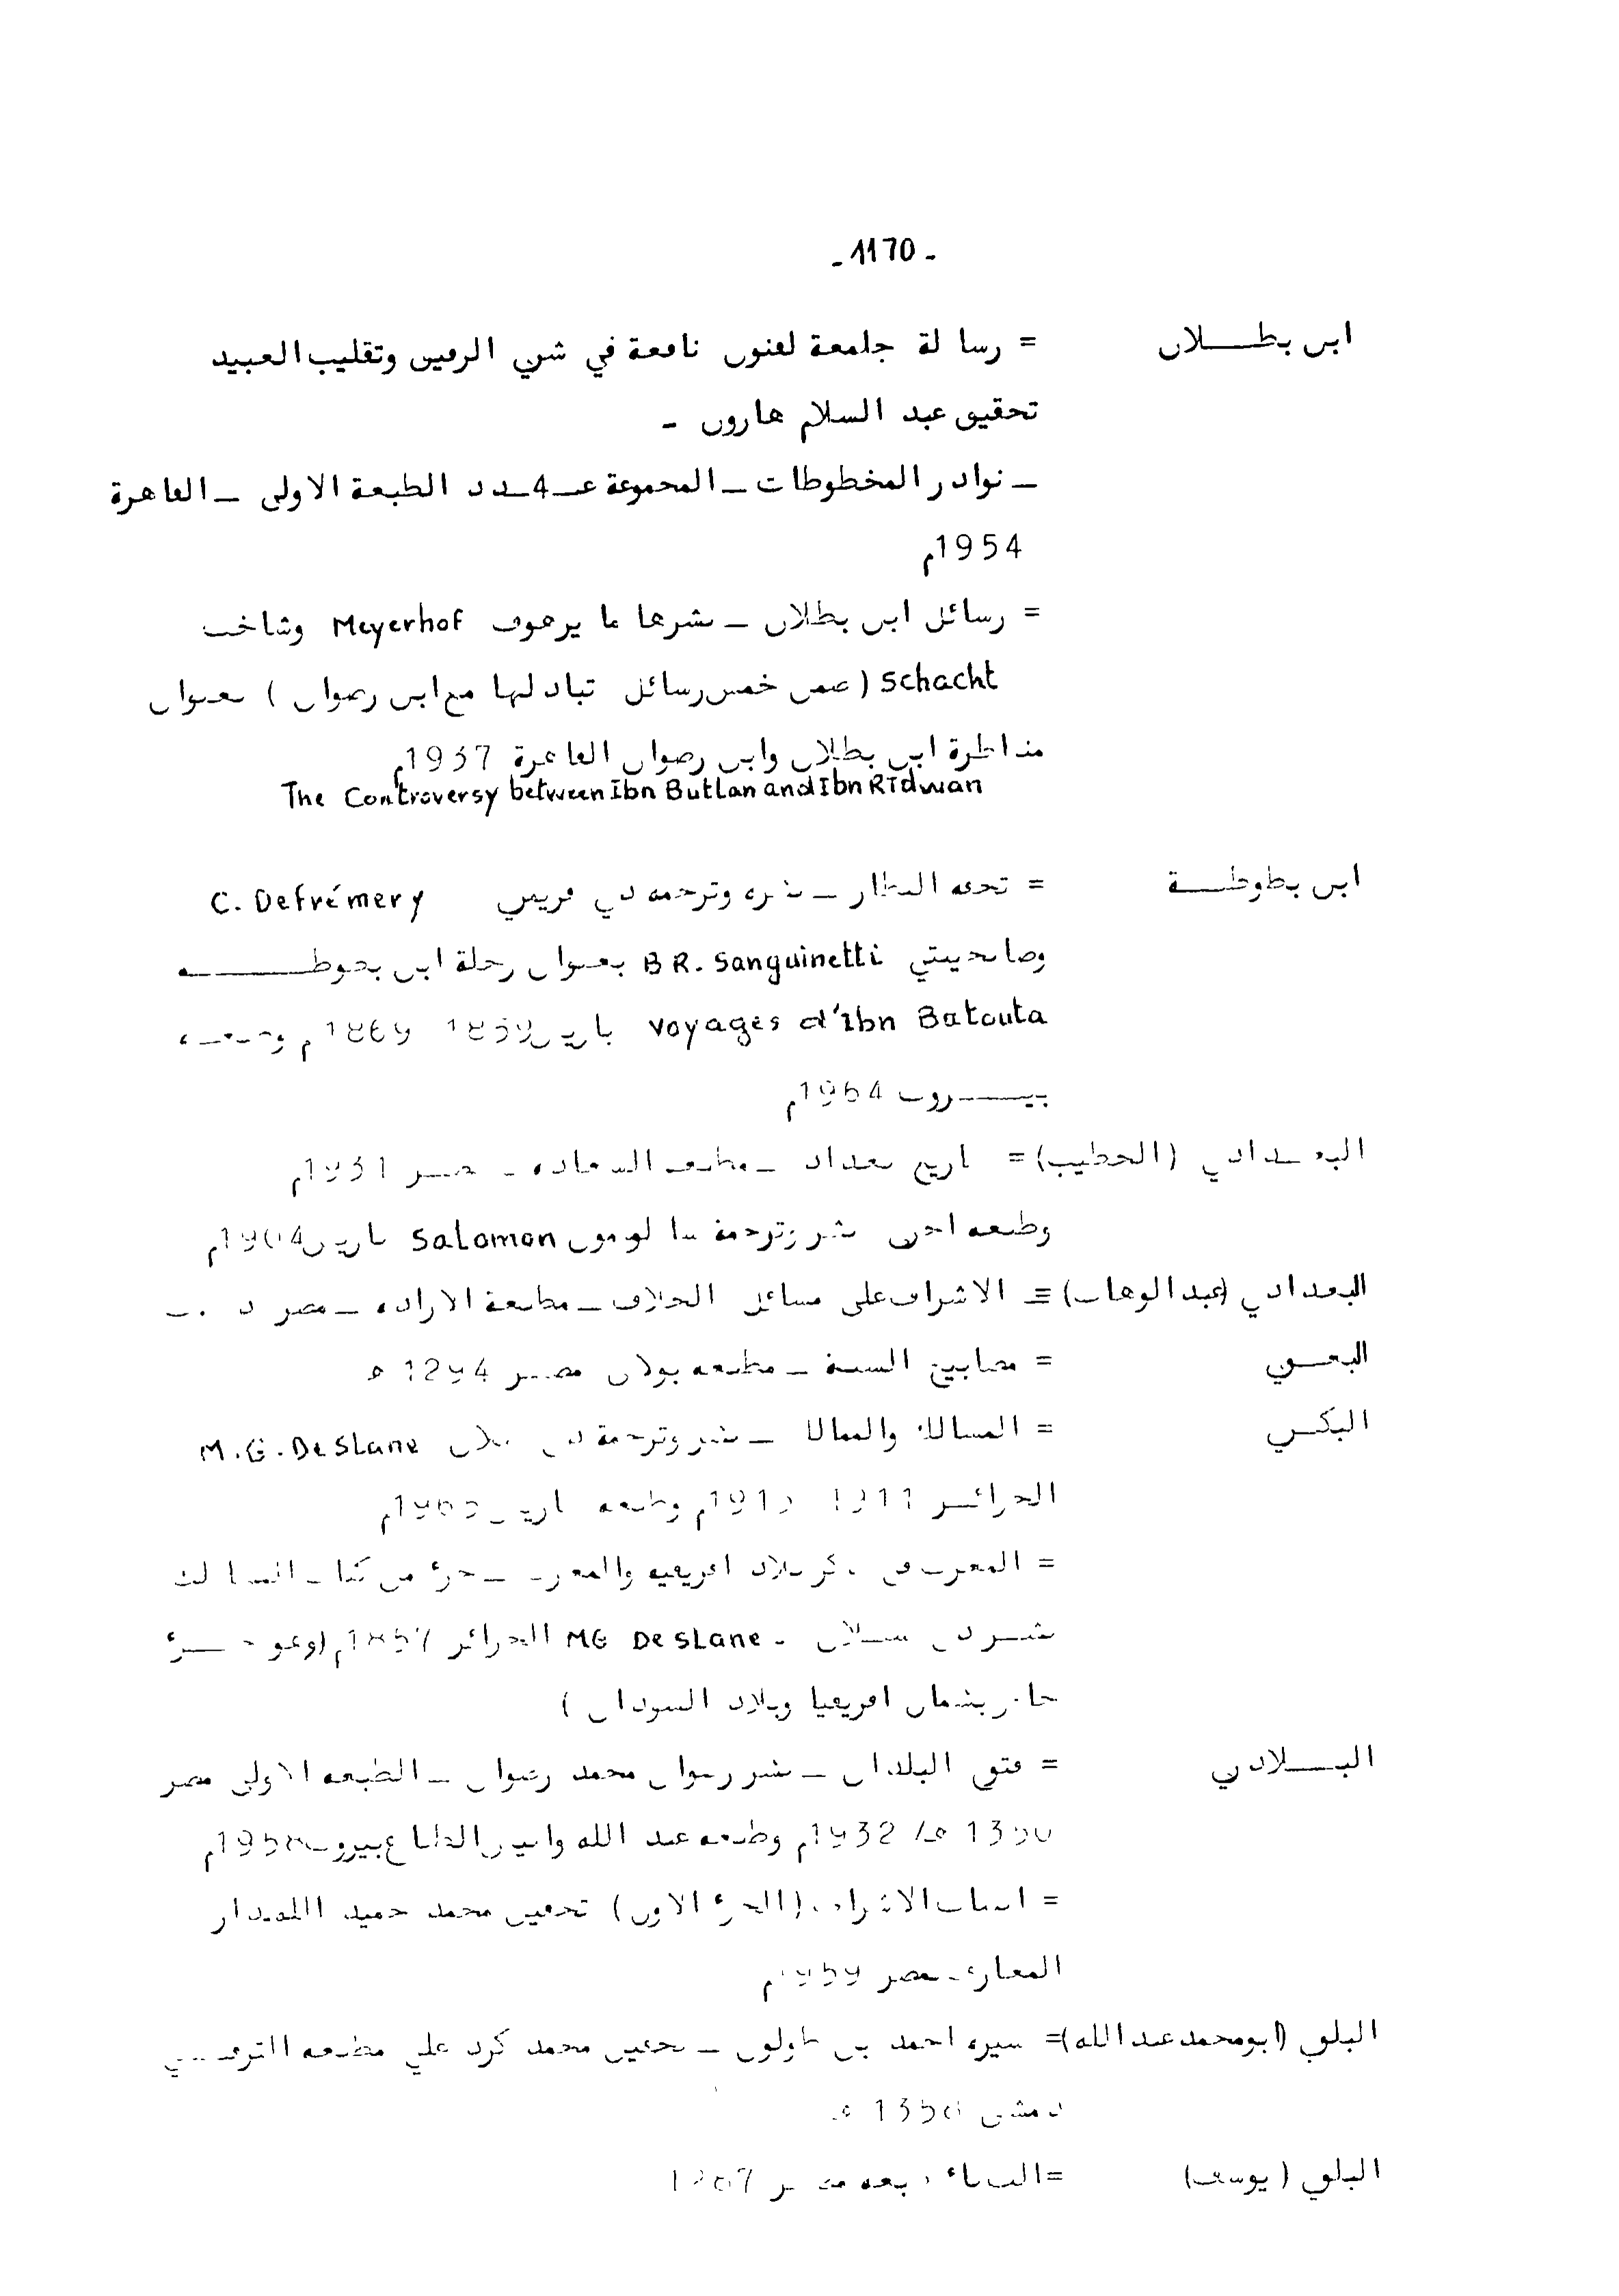 - 1170 -
ابن بطـــلان = رسالة جامعة لفنون نافعة في شري الرقيق وتقليب العبيد
تحقيق عبد السلام هارون -
ـ نوادر المخطوطات ـ المجموعة عـ4ـدد الطبعة الاولى ـ القاهرة
1954م
= رسائل ابن بطلان ـ نشرها ما يرهوف Meyerhof وشاخت
Schacht (ضمن خمس رسائل تبادلها مع ابن رضوان) بعنوان
مناظرة ابن بطلان وابن رضوان القاهرة 1937م
The Controversy between Ibn Butlan and Ibn Ridwan
ابن بطوطـــة = تحفة النظار ـ نشره وترجمه دي فريمري C. Defrémery
وصانجينتي B R. Sanguinetti بعنوان رحلة ابن بطوطـــه
Voyages d'Ibn Batouta باريس
بيـــروت 1964م
البغـدادي (الخطيب) = تاريخ بغداد ـ مطبعة السعادة ـ مصر 1931م
وطبعه اخرى نشر وترجمة سالومون Salomon باريس 1904م
البغدادي (عبد الوهاب) = الاشراف على مسائل الخلاف ـ مطبعة الارادة ـ مصر د . ت
البغـوي = مصابيح السنة ـ مطبعه بولاق مصـر 1294 ه
البكـري = المسالك والممالك ـ نشر وترجمة دي سلان M.G. De Slane
الجزائـر 1911 م وطبعه باريس م
= المغرب في ذكر بلاد افريقيه والمغرب ـ جزء من كتاب المسالك
نشـر دي سـلان - MG De Slane الجزائر 1857م (وهو جـــزء
خاص بشمال افريقيا وبلاد السودان)
البـــلاذري = فتوح البلدان ـ نشر رضوان محمد رضوان ـ الطبعه الاولى مصر
1350 ه/ 1932م وطبعه عبد الله وانيس الطباع بيروت 1958م
= انساب الاشراف (الجزء الاول) تحقيق محمد حميد الله دار
المعارف ـ مصر 1959م
البلوي (ابو محمد عبد الله) = سيره احمد بن طولون ـ تحقيق محمد كرد علي مطبعه الترقـــي
دمشق 1350 ه
البلوي (يوسف) =